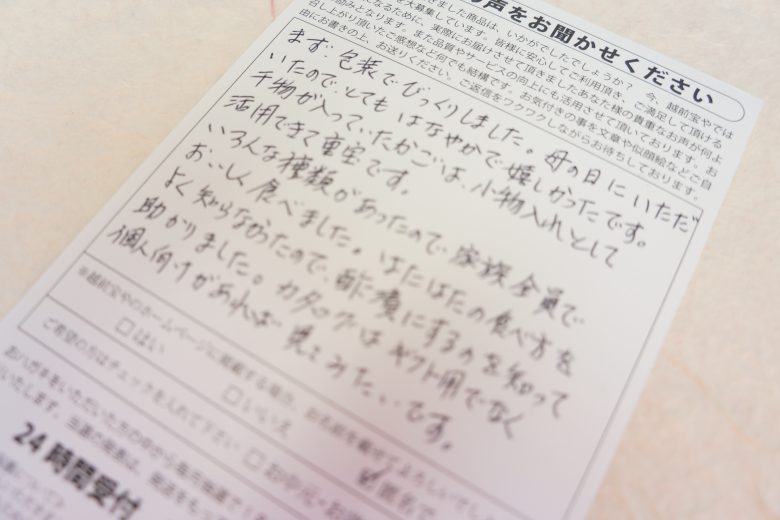 の声をお聞かせください
きました商品は、いかがでしたでしょうか？ 今、越前宝やでは
を大募集しています。皆様に安心してご利用頂き、ご満足して頂ける
になるために、実際にお届けさせて頂きましたあなた様の貴重なお声が何よ
励みとなります。また品質やサービスの向上にも活用させて頂いております。お
召し上がり頂いたご感想など何でも結構です。お気付きの事を文章や似顔絵などご自
由にお書きの上、お送りください。ご返信をワクワクしながらお待ちしております。
まず、包装でびっくりしました。母の日にいただ
いたのでとてもはなやかで嬉しかったです。
干物が入っていたかごは、小物入れとして
活用できて重宝です。
いろんな種類があったので、家族全員で
おいしく食べました。はたはたの食べ方を
よく知らなかったので、酢に漬にするのを知って
助かりました。カタログはギフト用でなく
個人向けがあれば見てみたいです。
※越前宝やのホームページに掲載する場合、お名前を載せてよろしいでし
□はい □いいえ 匿名で
ご希望の方はチェックを入れて下さい □お中元・お歳
おハガキをいただいた方の中から毎月抽選で
いたします。当選の発表は、発送をもっ
24時間受付